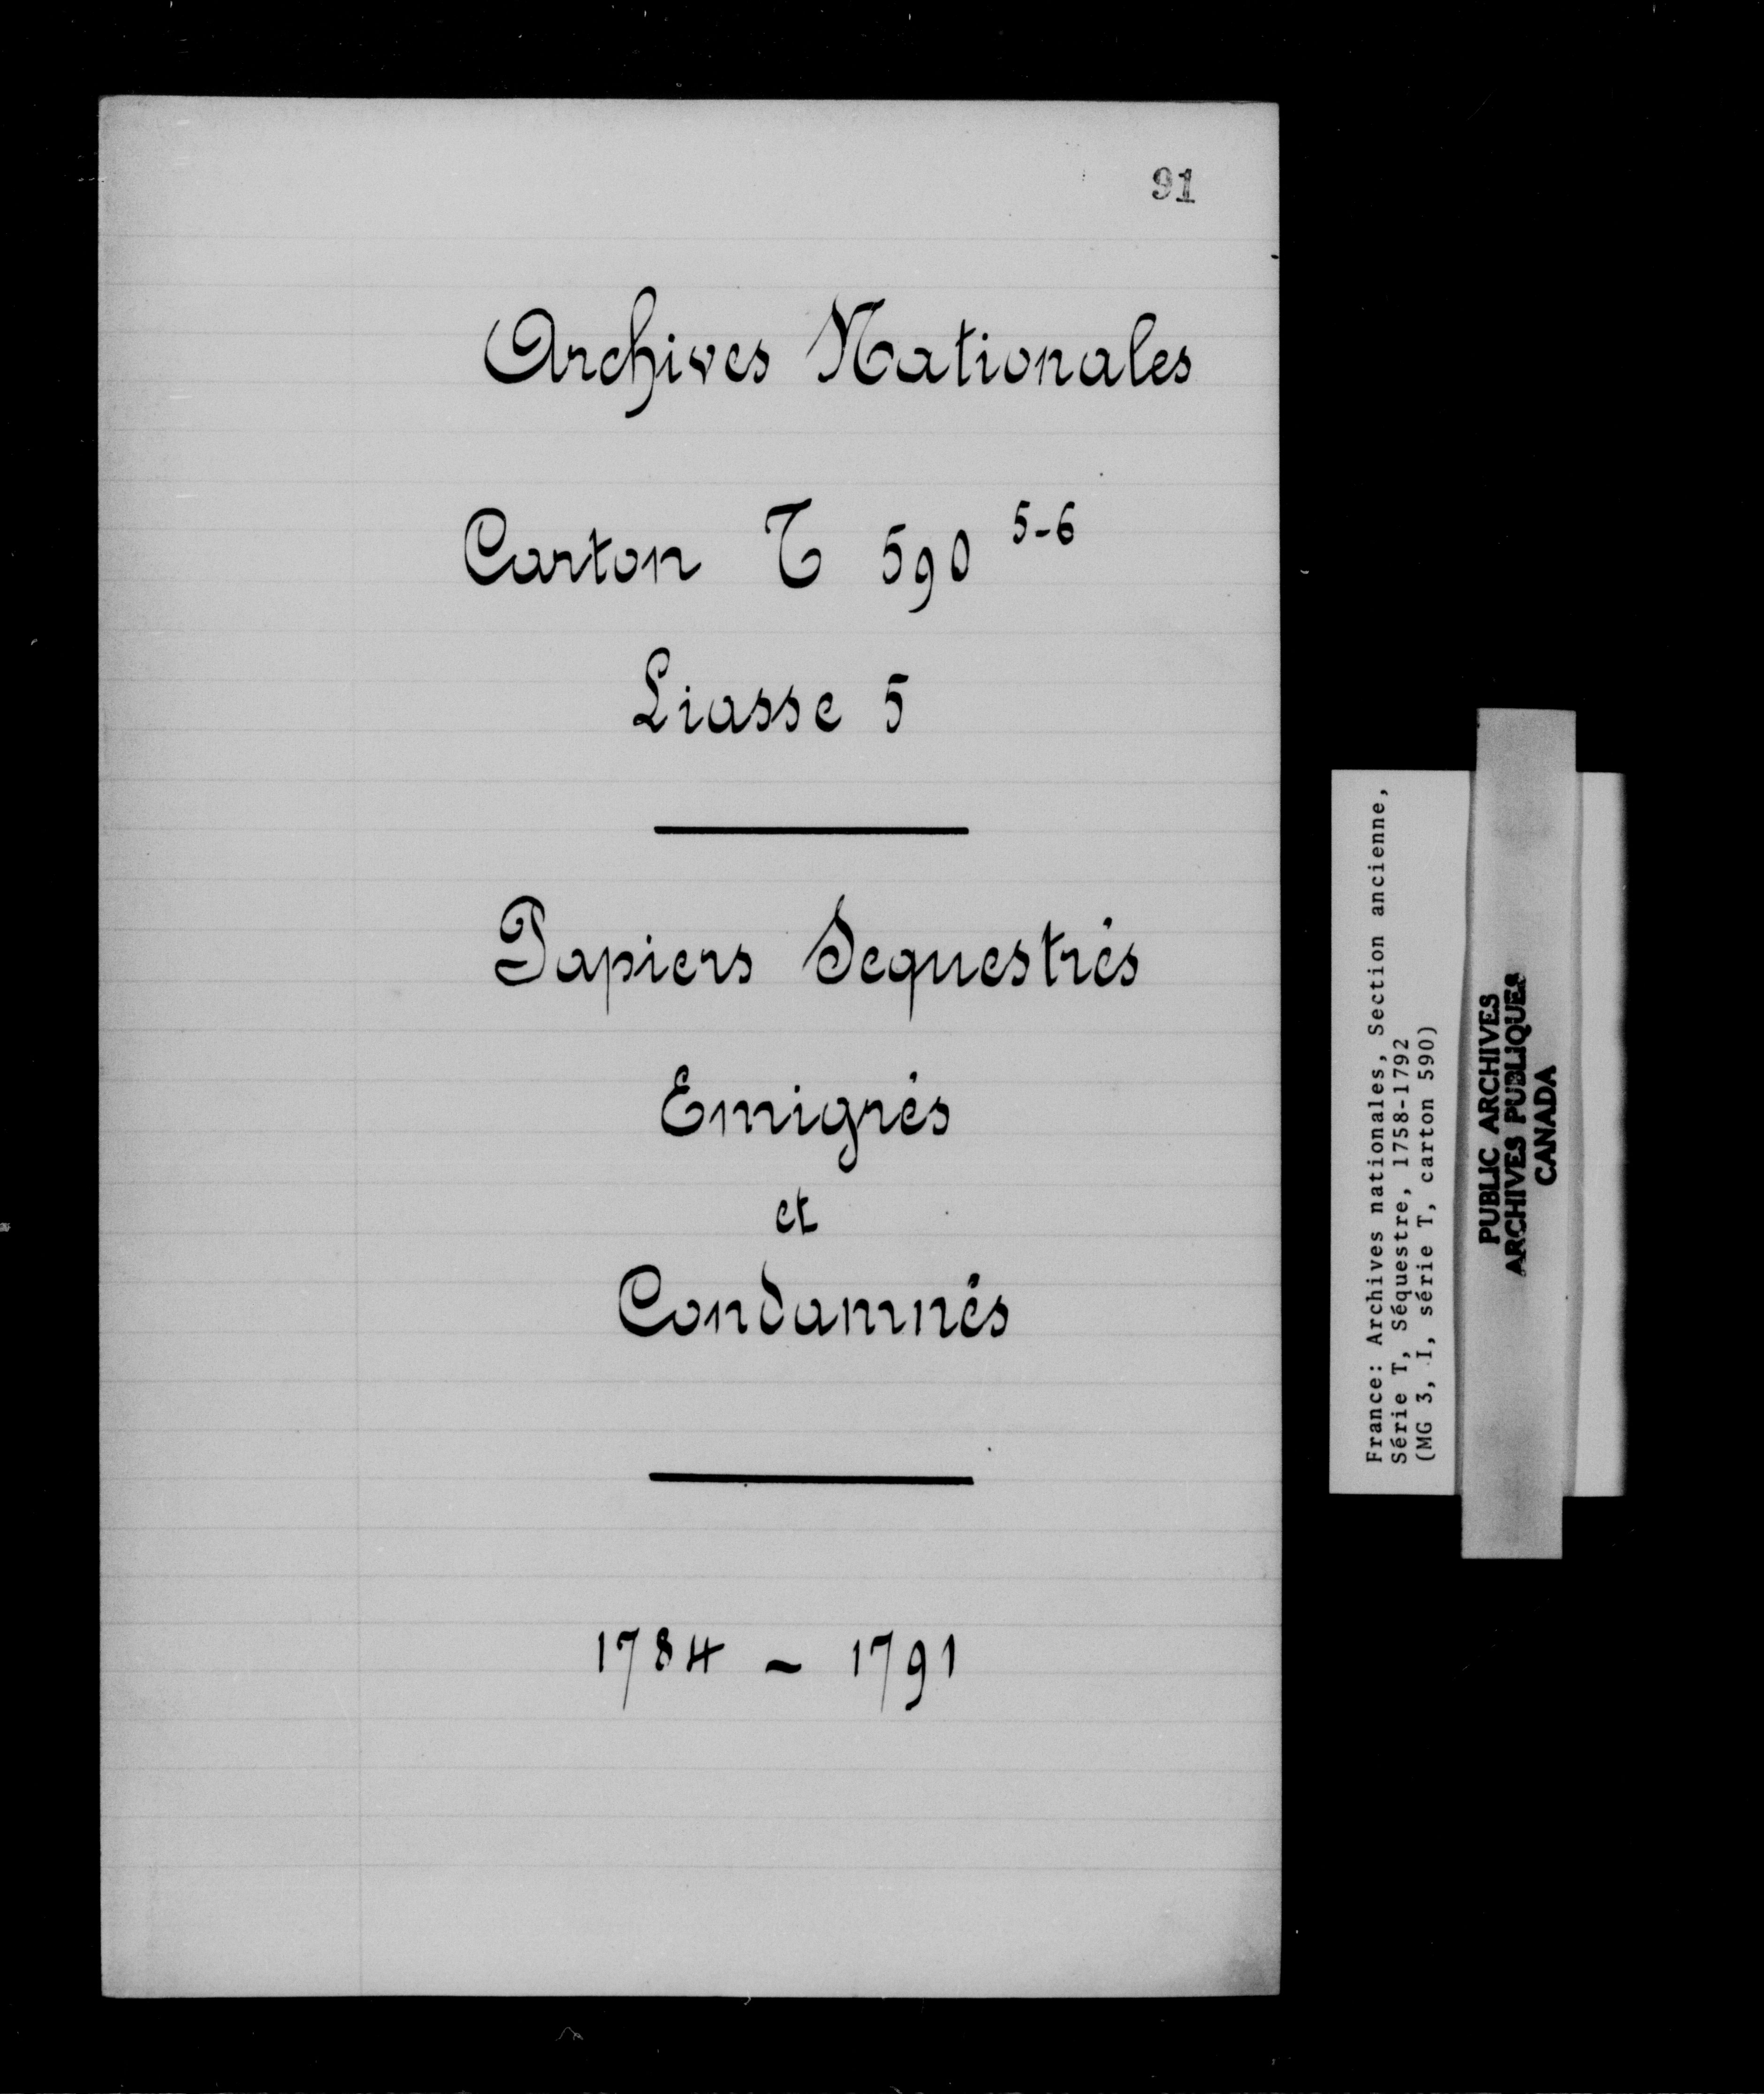 91
Archives Nationales
Carton T 590 5-6
Liasse 5
Papiers Sequestrés
Emigrés
et
Condamnés
1784 - 1791
France: Archives nationales, Section ancienne,
Série T, Séquestre, 1758-1792
(MG 3, I, série T, carton 590)
PUBLIC ARCHIVES
ARCHIVES PUBLIQUES
CANADA